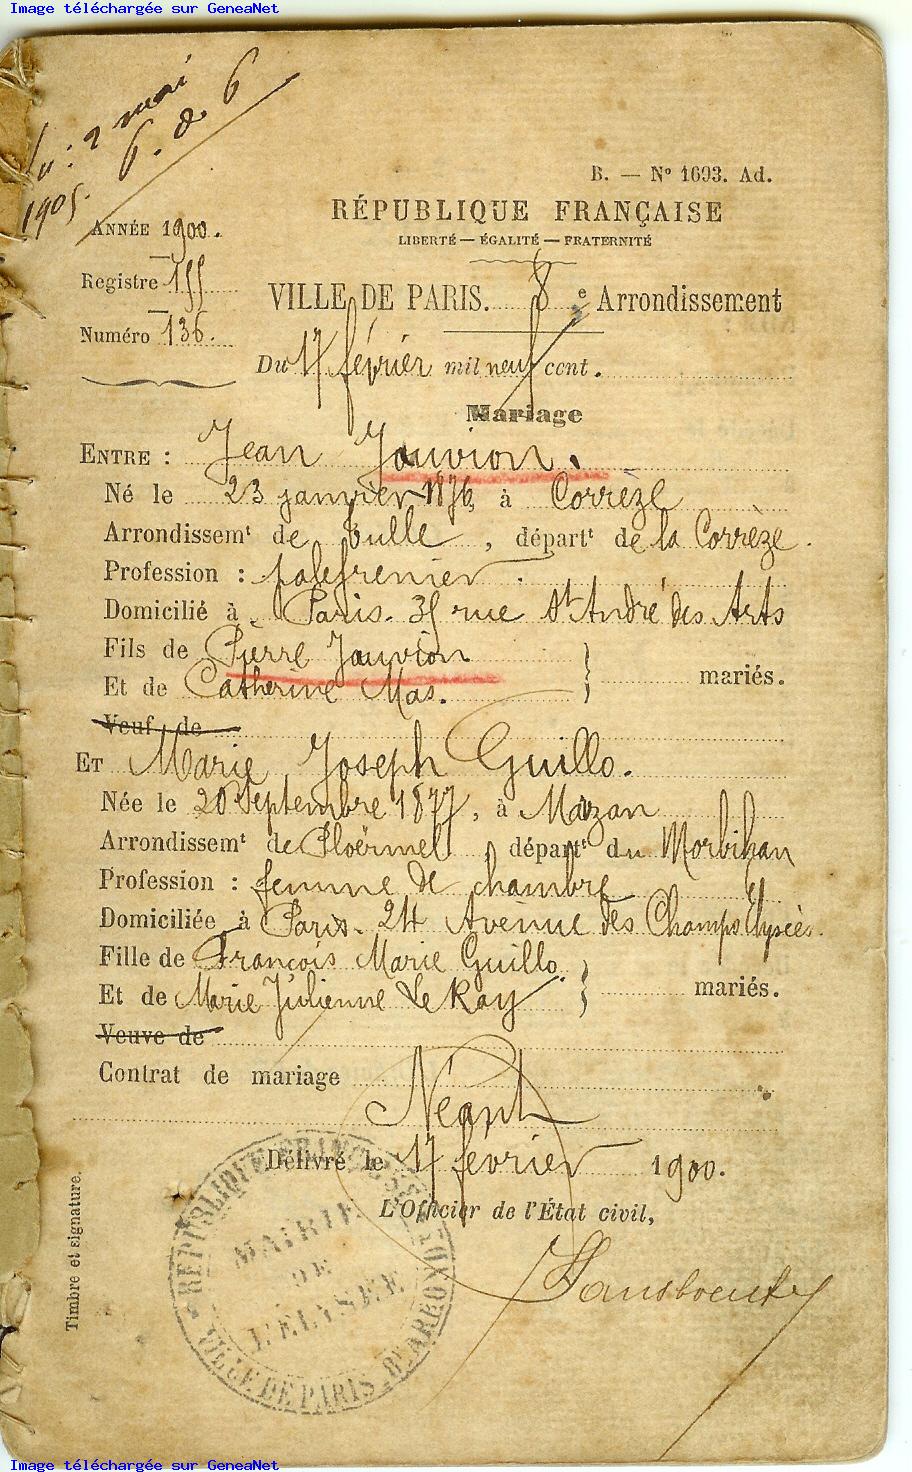 Image téléchargée sur GeneaNet
Vu : 2 mai
1905. 6. 8. 6
B. — N° 1693. Ad.
RÉPUBLIQUE FRANÇAISE
LIBERTÉ — ÉGALITÉ — FRATERNITÉ
ANNÉE 1900.
Registre 155
Numéro 136.
VILLE DE PARIS. 8e Arrondissement
Du 17 février mil neuf cent.
Mariage
ENTRE : Jean Jauvion.
Né le 23 janvier 1876 à Corrèze
Arrondissemt de Tulle, départt de la Corrèze.
Profession : palefrenier.
Domicilié à Paris. 35 rue St André des Arts
Fils de Pierre Jauvion
Et de Catherine Mas. } mariés.
Veuf de
ET Marie Joseph Guillo.
Née le 20 Septembre 1877, à Mazan
Arrondissemt de Ploërmel départt du Morbihan
Profession : femme de chambre
Domiciliée à Paris. 24 Avenue des Champs Elysées.
Fille de François Marie Guillo
Et de Marie Julienne Le Ray } mariés.
Veuve de
Contrat de mariage
Néant
Délivré le 17 février 1900.
L'Officier de l'État civil,
Timbre et signature.
RÉPUBLIQUE FRANÇAISE
MAIRIE
DE
L'ÉLYSÉE
VILLE DE PARIS 8e ARRONDt
Image téléchargée sur GeneaNet